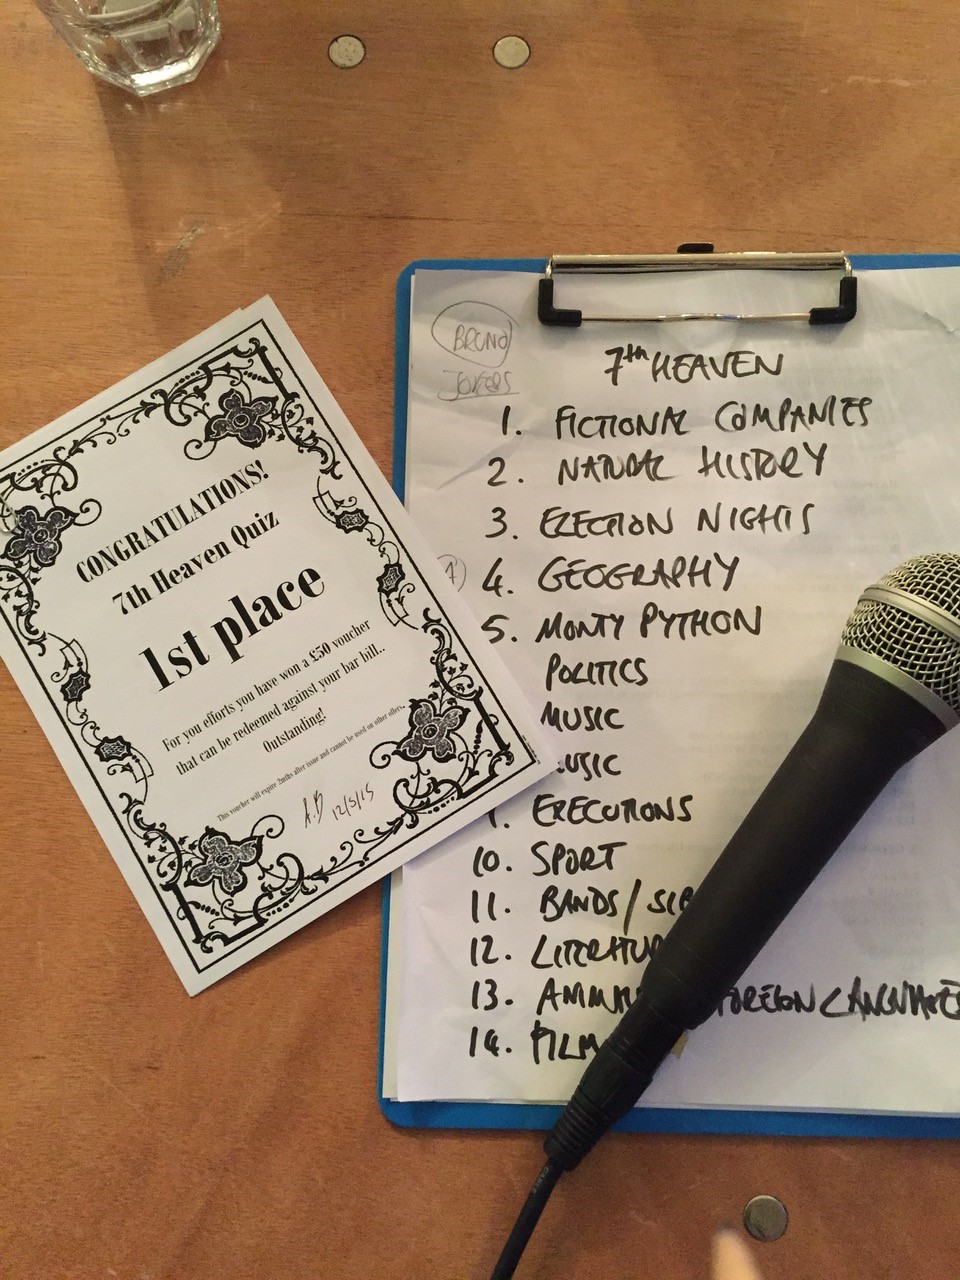 CONGRATULATIONS!
7th Heaven Quiz
1st place
For you efforts you have won a £50 voucher
that can be redeemed against your bar bill..
Outstanding!
This voucher will expire 2mths after issue and cannot be used on other offers.
A.B 12/5/15
BRUNO
JOKERS
7th HEAVEN
1. FICTIONAL COMPANIES
2. NATURAL HISTORY
3. ELECTION NIGHTS
4. GEOGRAPHY
5. MONTY PYTHON
POLITICS
MUSIC
MUSIC
9. EXECUTIONS
10. SPORT
11. BANDS /
12. LITERATUR
13. FOREIGN LANGUAGES
14. FILM